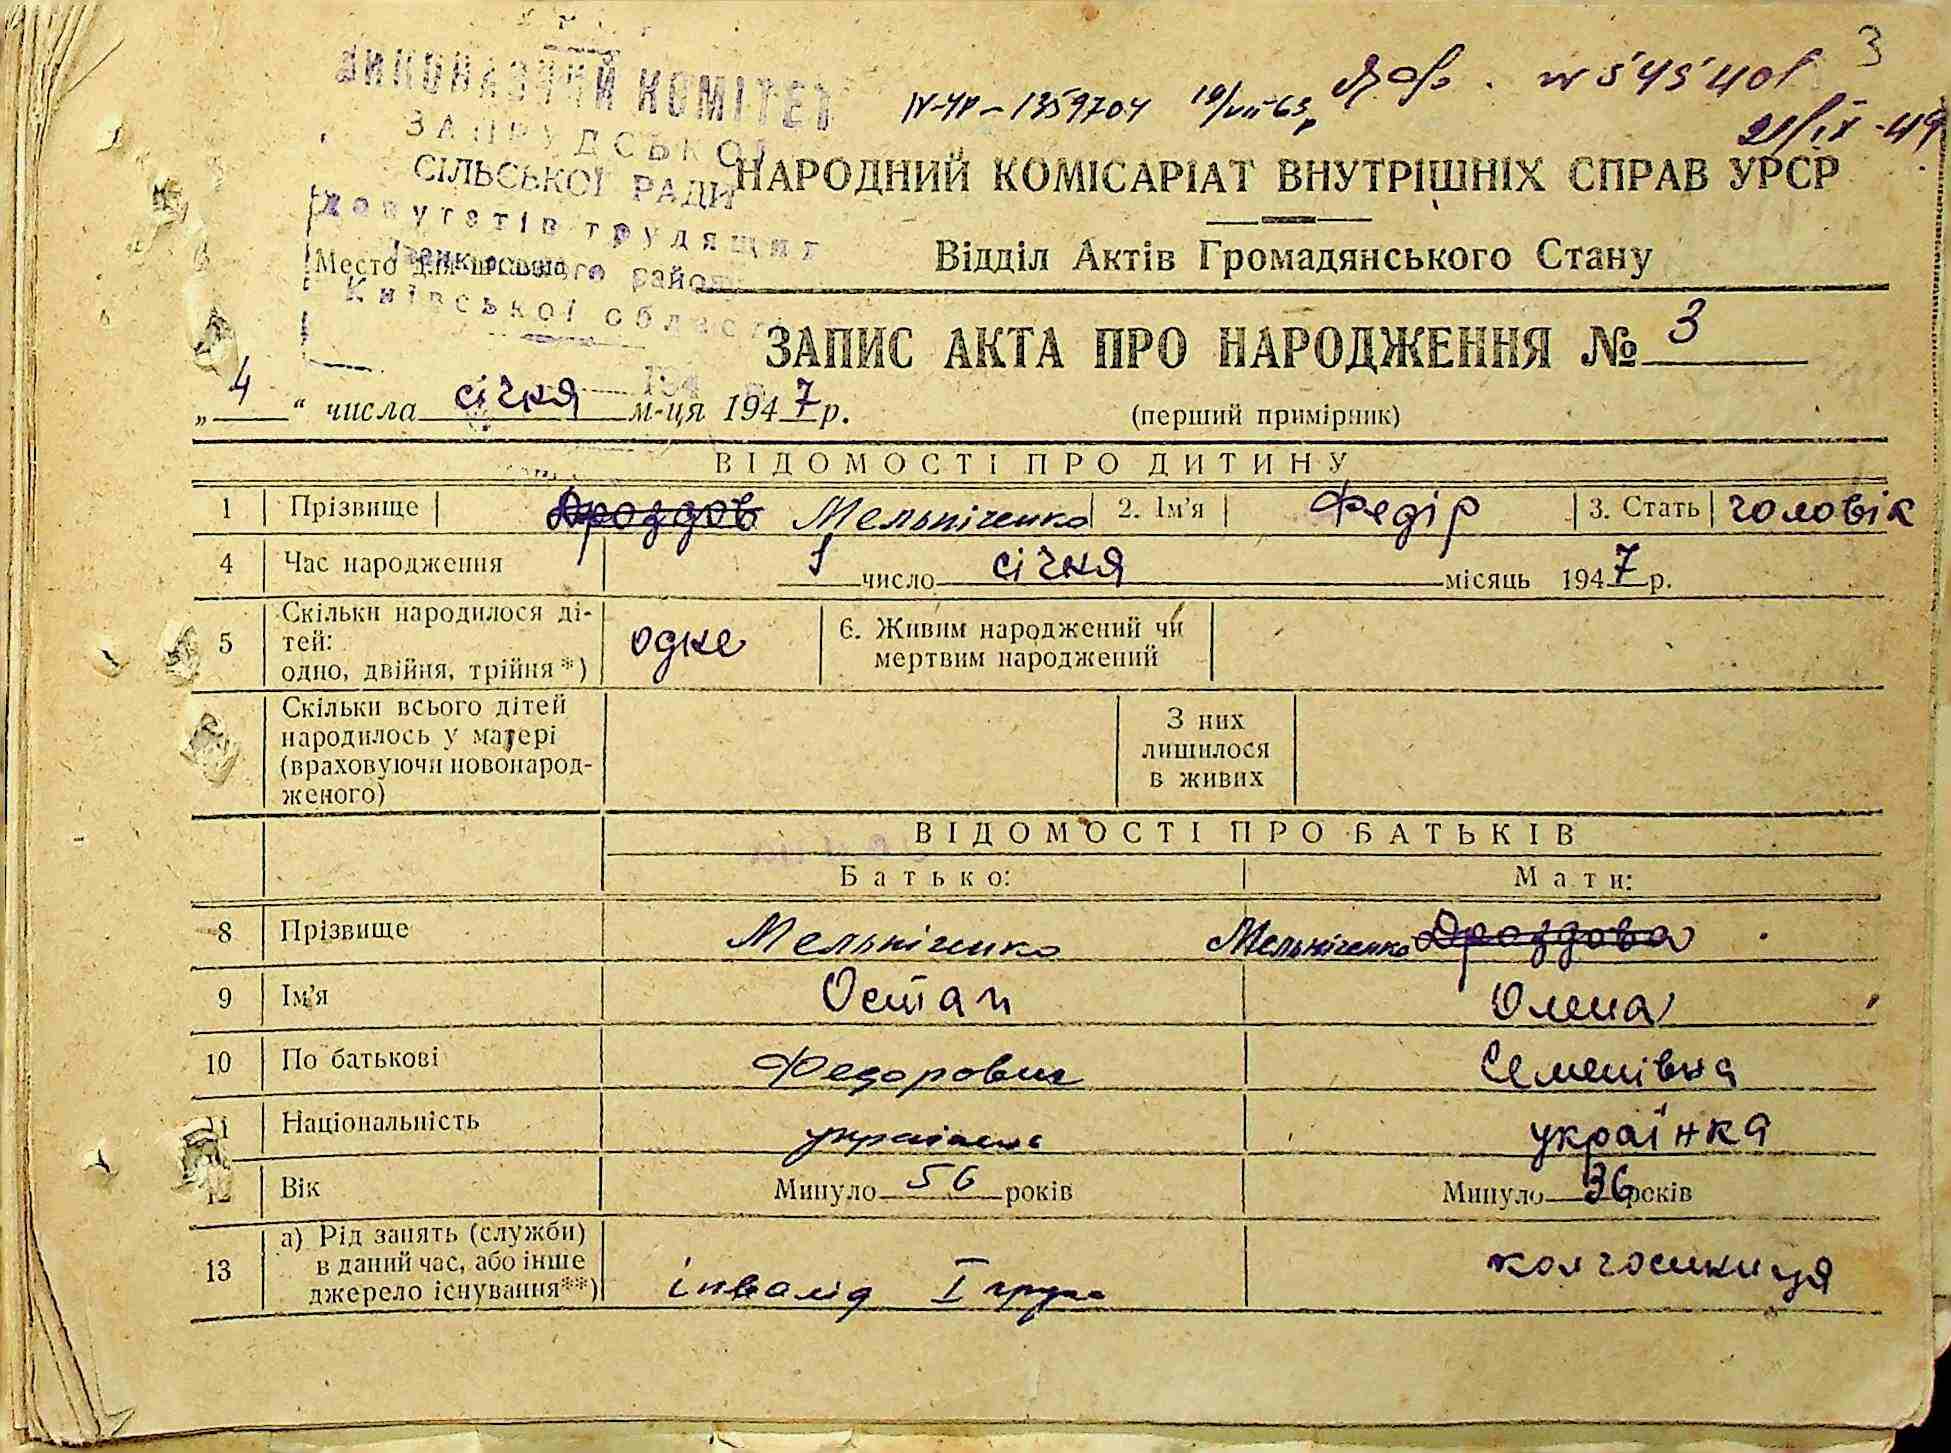 3
ІV-ЧР-1359704 19/VII-63р
№ 545401
21/ІХ-49
ВИКОНАВЧИЙ КОМІТЕТ
ЗАПРУДСЬКОЇ
СІЛЬСЬКОЇ РАДИ
депутатів трудящих
Іванківського району
Київської області
Место для штампа
194
НАРОДНИЙ КОМІСАРІАТ ВНУТРІШНІХ СПРАВ УРСР
Відділ Актів Громадянського Стану
ЗАПИС АКТА ПРО НАРОДЖЕННЯ № 3
„ 4 “ числа січня м-ця 1947 р.
(перший примірник)
ВІДОМОСТІ ПРО ДИТИНУ
1 Прізвище Дроздов Мельніченко 2. Ім’я Федір 3. Стать чоловік
4 Час народження 1 число січня місяць 1947 р.
5 Скільки народилося ді-
тей:
одно, двійня, трійня*) одне
6. Живим народжений чи
мертвим народжений
Скільки всього дітей
народилось у матері
(враховуючи новонарод-
женого)
З них
лишилося
в живих
ВІДОМОСТІ ПРО БАТЬКІВ
Батько: Мати:
8 Прізвище Мельніченко Мельніченко Дроздова
9 Ім’я Остап Олена
10 По батькові Федорович Семенівна
11 Національність українець українка
12 Вік Минуло 56 років Минуло 36 років
13 а) Рід занять (служби)
в даний час, або інше
джерело існування**) інвалід І групи колгоспниця